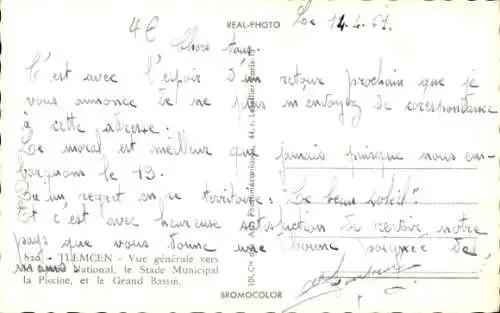 4€
REAL-PHOTO
Le 14.4.61.
Chers tous.
C'est avec l'espoir d'un retour prochain que je
vous annonce de ne plus m'envoyez de corespondance
à cette adresse.
Le moral est meilleur que jamais puisque nous em-
barquons le 19.
Qu'un regret en ce territoire: "Le beau soleil".
Et c'est avec heureuse satisfaction de revoir notre
pays que vous donne une bonne poignée de
main
820 - TLEMCEN - Vue générale vers
National, le Stade Municipal
la Piscine, et le Grand Bassin.
BROMOCOLOR